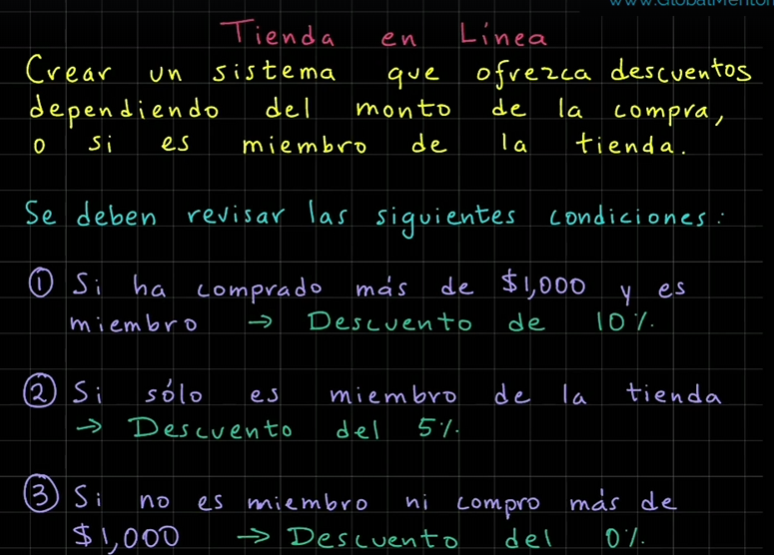 www.GlobalMentor
Tienda en Línea
Crear un sistema que ofrezca descuentos
dependiendo del monto de la compra,
o si es miembro de la tienda.
Se deben revisar las siguientes condiciones:
① Si ha comprado más de $1,000 y es
miembro → Descuento de 10%.
② Si sólo es miembro de la tienda
→ Descuento del 5%.
③ Si no es miembro ni compro más de
$1,000 → Descuento del 0%.